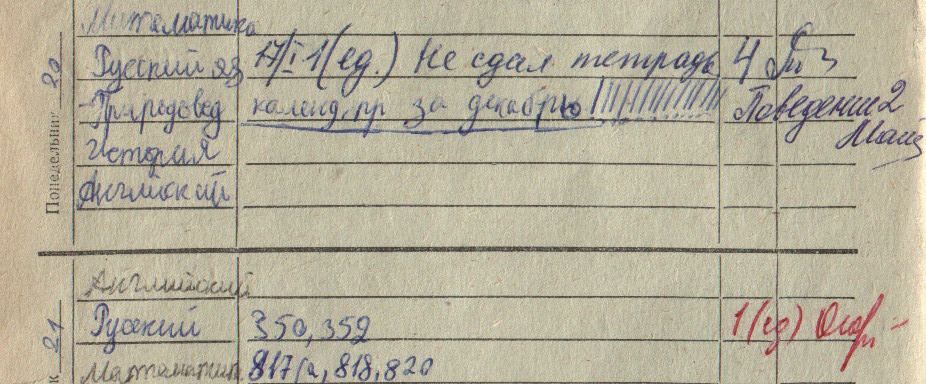 Математика
Понедельник 20
Русский яз 17/I 1(ед.) Не сдал тетрадь 4
Природовед календ. пр за декабрь!!!!!!!!!!!! Поведение 2
История
Английский
Английский
21
Русский 350, 352 1(ед)
Математик. 817(а, 818, 820